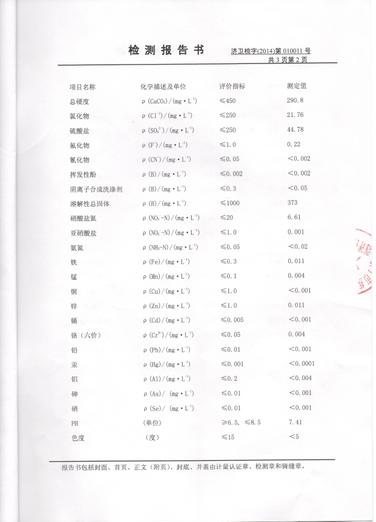 检测报告书
济卫检字(2014)第 010011 号
共 3 页第 2 页
项目名称 化学描述及单位 评价指标 测定值
总硬度 ρ(CaCO₃)/(mg·L⁻¹) ≤450 290.8
氯化物 ρ(Cl⁻)/(mg·L⁻¹) ≤250 21.76
硫酸盐 ρ(SO₄²⁻)/(mg·L⁻¹) ≤250 44.78
氟化物 ρ(F⁻)/(mg·L⁻¹) ≤1.0 0.22
氰化物 ρ(CN⁻)/(mg·L⁻¹) ≤0.05 <0.002
挥发性酚 ρ(B)/(mg·L⁻¹) ≤0.002 <0.002
阴离子合成洗涤剂 ρ(B)/(mg·L⁻¹) ≤0.3 <0.05
溶解性总固体 ρ(B)/(mg·L⁻¹) ≤1000 373
硝酸盐氮 ρ(NO₃⁻-N)/(mg·L⁻¹) ≤20 6.61
亚硝酸盐 ρ(NO₂⁻-N)/(mg·L⁻¹) ≤1.0 0.001
氨氮 ρ(NH₃-N)/(mg·L⁻¹) ≤0.05 <0.02
铁 ρ(Fe)/(mg·L⁻¹) ≤0.3 0.011
锰 ρ(Mn)/(mg·L⁻¹) ≤0.1 0.004
铜 ρ(Cu)/(mg·L⁻¹) ≤1.0 <0.001
锌 ρ(Zn)/(mg·L⁻¹) ≤1.0 0.011
镉 ρ(Cd)/(mg·L⁻¹) ≤0.005 <0.001
铬（六价） ρ(Cr⁶⁺)/(mg·L⁻¹) ≤0.05 0.004
铅 ρ(Pb)/(mg·L⁻¹) ≤0.01 <0.001
汞 ρ(Hg)/(mg·L⁻¹) ≤0.001 <0.0001
铝 ρ(Al)/(mg·L⁻¹) ≤0.2 <0.004
砷 ρ(As)/ (mg·L⁻¹) ≤0.01 <0.001
硒 ρ(Se)/ (mg·L⁻¹) ≤0.01 <0.001
PH (单位) ≥6.5, ≤8.5 7.41
色度 (度) ≤15 <5
报告书包括封面、首页、正文（附页）、封底、并盖由计量认证章、检测章和骑缝章。